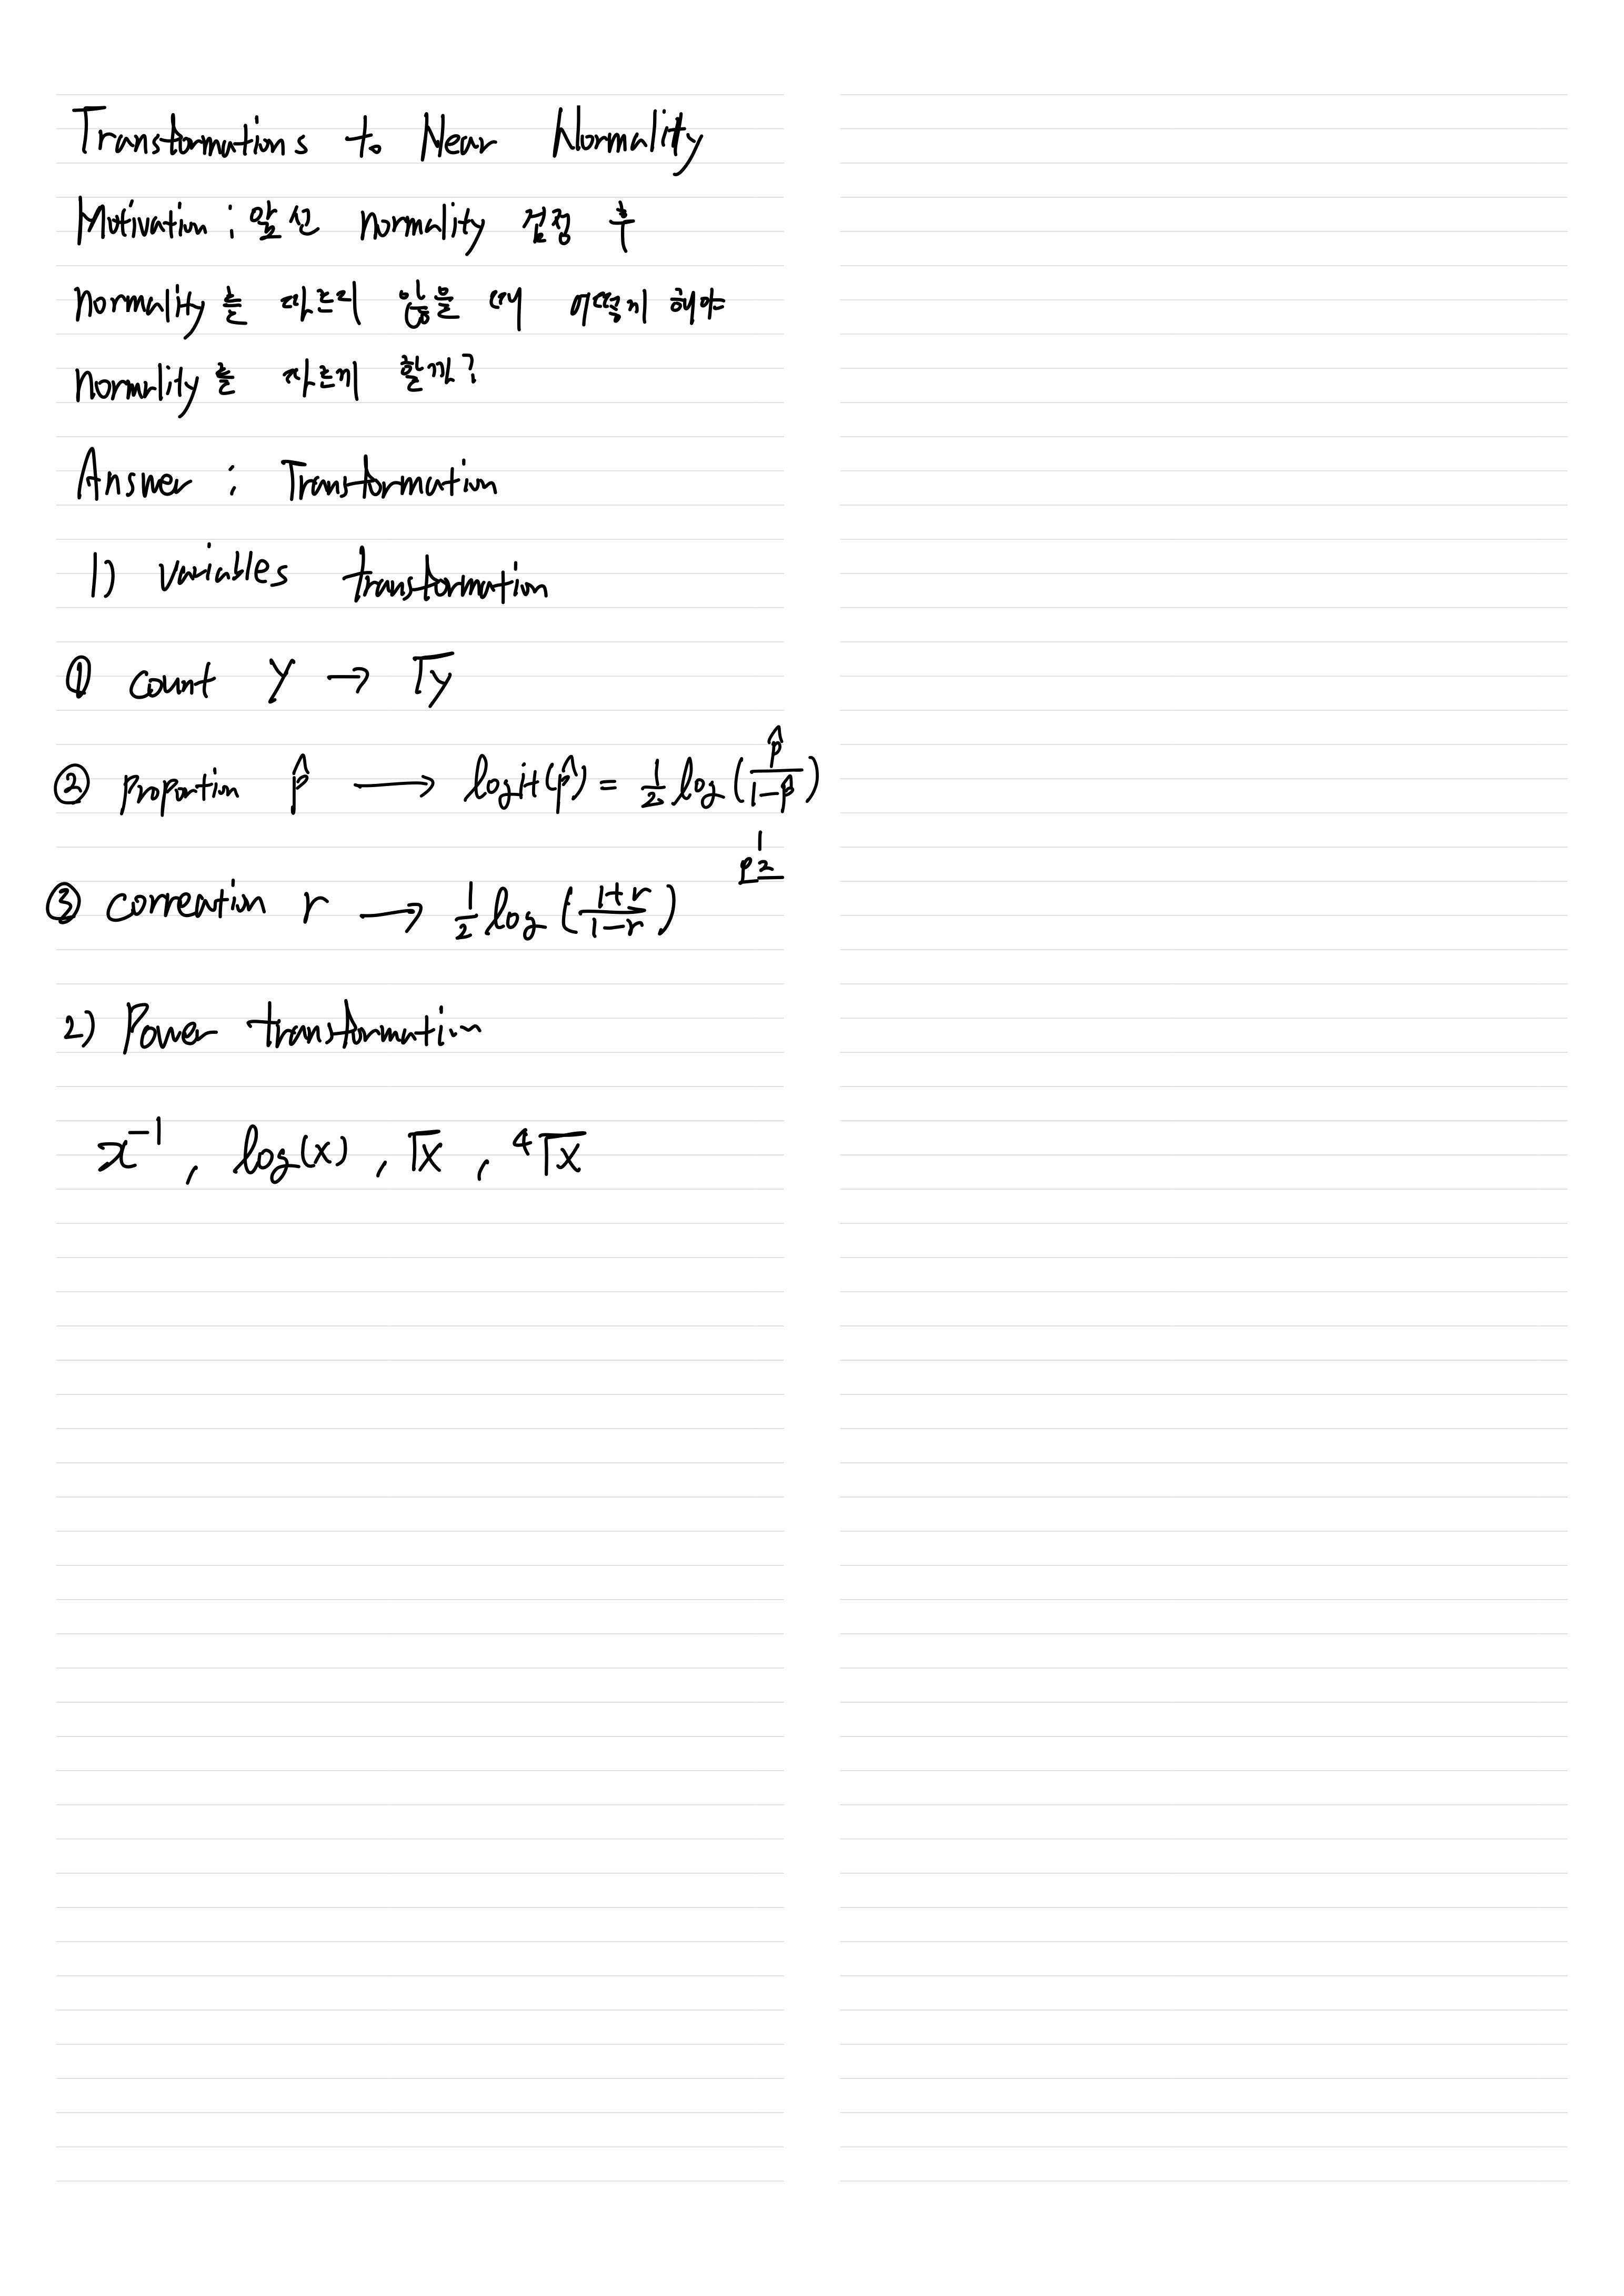 Transformations to Near Normality
Motivation : 앞선 normality 검정 후
normality를 따르지 않을 때 어떻게 해야
normality를 따르게 할까?
Answer : Transformation
1) variables transformation
① count y → √y
② proportion p̂ → logit(p̂) = 1/2 log(p̂/(1-p̂))
p 1/2
③ correlation r → 1/2 log((1+r)/(1-r))
2) Power transformation
x^-1, log(x), √x, ⁴√x